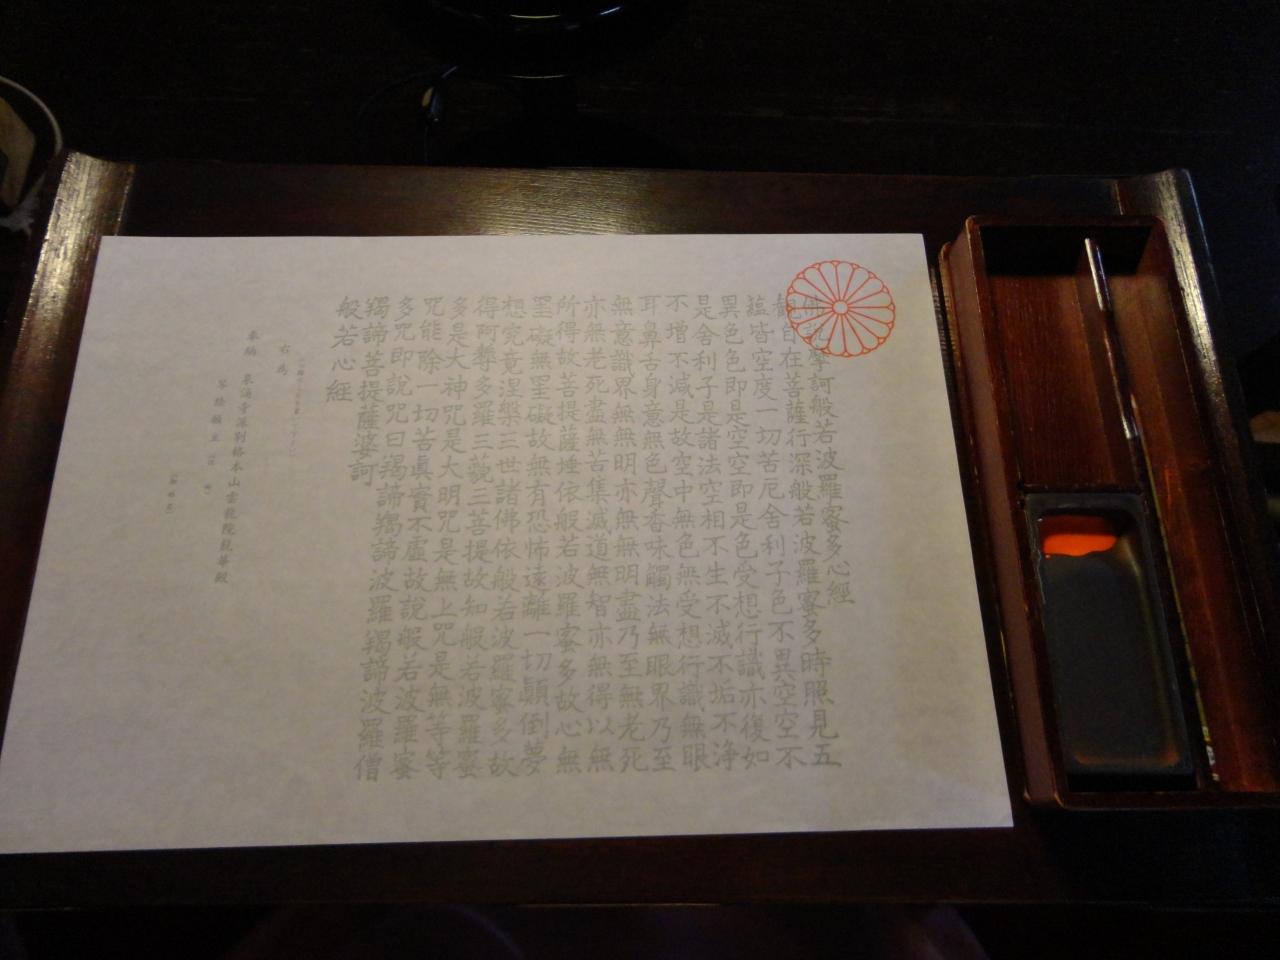 佛説摩訶般若波羅蜜多心經
觀自在菩薩行深般若波羅蜜多時照見五
蘊皆空度一切苦厄舍利子色不異空空不
異色色即是空空即是色受想行識亦復如
是舍利子是諸法空相不生不滅不垢不浄
不增不減是故空中無色無受想行識無眼
耳鼻舌身意無色聲香味觸法無眼界乃至
無意識界無無明亦無無明盡乃至無老死
亦無老死盡無苦集滅道無智亦無得以無
所得故菩提薩埵依般若波羅蜜多故心無
罣礙無罣礙故無有恐怖遠離一切顚倒夢
想究竟涅槃三世諸佛依般若波羅蜜多故
得阿耨多羅三藐三菩提故知般若波羅蜜
多是大神咒是大明咒是無上咒是無等等
咒能除一切苦眞實不虛故説般若波羅蜜
多咒即説咒曰羯諦羯諦波羅羯諦波羅僧
羯諦菩提薩婆訶
般若心經
右為
奉納 泉涌寺派別格本山雲龍院龍華殿